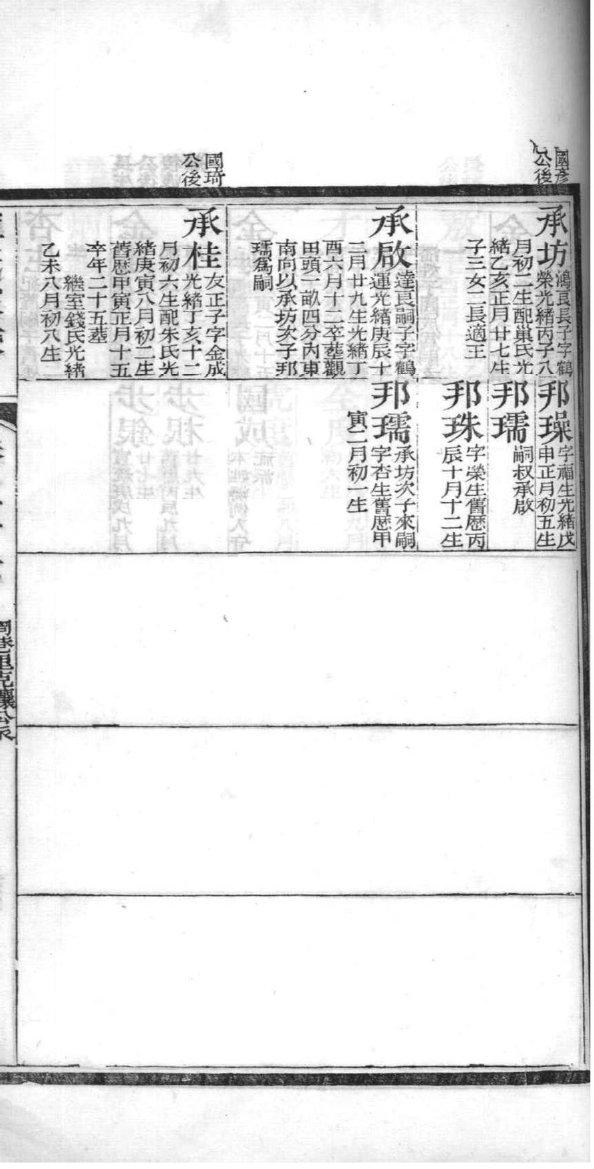 國彥
公後
承坊
鴻良長子字鶴
榮光緒丙子八
月初二生配巢氏光
緒乙亥正月廿七生
子三女二長適王
承啟
達良嗣子字鶴
運光緒庚辰十
二月廿九生光緒丁
酉六月十二卒葬觀
田頭一畝四分內東
南向以承坊次子邦
瓀爲嗣
國琦
公後
承桂
友正子字金成
光緒丁亥十二
月初六生配朱氏光
緒庚寅八月初二生
舊歷甲寅正月十五
卒年二十五葬
繼室錢氏光緒
乙未八月初八生
邦璪
字福生光緒戊
申正月初五生
邦瓀
嗣叔承啟
邦珠
字榮生舊歷丙
辰十月十二生
邦瓀
承坊次子來嗣
字杏生舊歷甲
寅二月初一生